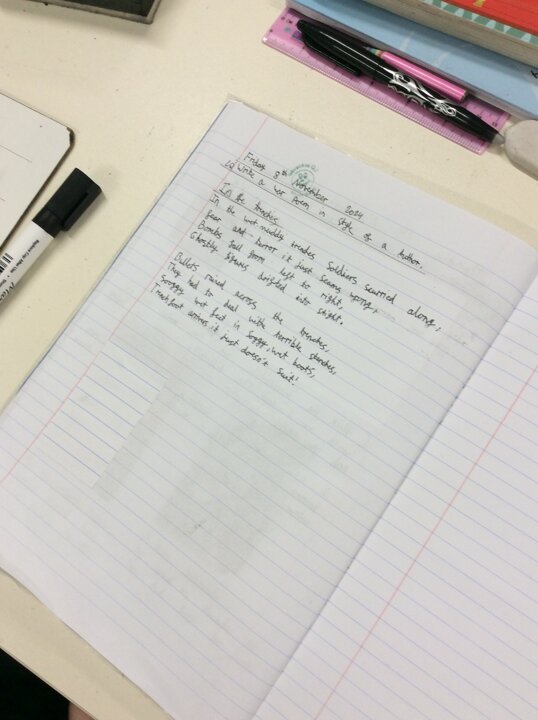 Friday 8th November 2024
LO Write a war Poem in style of a Author.
In the trenches
In the wet muddy trenches Soldiers scurried along,
fear and horror it Just seems wrong,
Bombs fall from left to right,
Ghostly figures drifted into slight.
Bullets rained across the trenches,
They had to deal with terrible stenches,
Soggy wet feet in Soggy, wet boots,
Trenchfoot arrives, it Just doesn't suit!